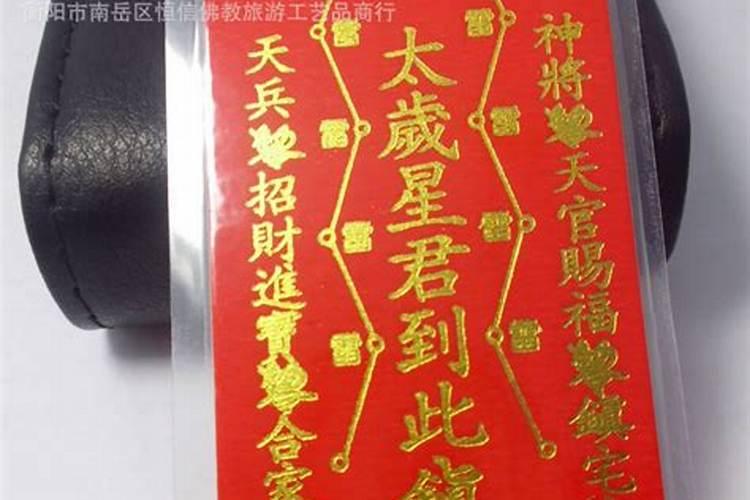 衡阳市南岳区恒信佛教旅游工艺品商行
神將
天官賜福
鎮宅
太歲星君到此鎮
天兵
招財進寶
合家